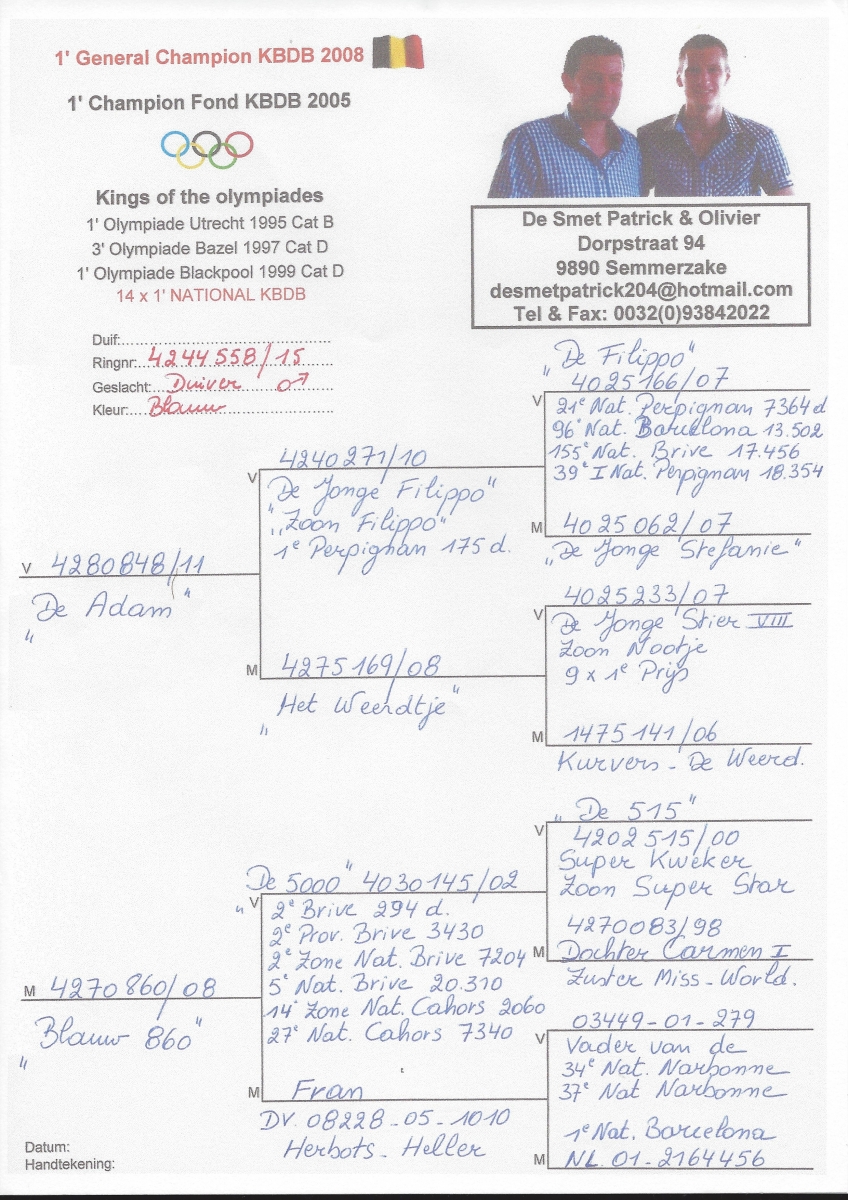 1' General Champion KBDB 2008
1' Champion Fond KBDB 2005
Kings of the olympiades
1' Olympiade Utrecht 1995 Cat B
3' Olympiade Bazel 1997 Cat D
1' Olympiade Blackpool 1999 Cat D
14 x 1' NATIONAL KBDB
De Smet Patrick & Olivier
Dorpstraat 94
9890 Semmerzake
desmetpatrick204@hotmail.com
Tel & Fax: 0032(0)93842022
Duif:
Ringnr: 4244558/15
Geslacht: Duiver ♂
Kleur: Blauw
V 4280848/11
"De Adam"
V 4240271/10
"De Jonge Filippo"
"Zoon Filippo"
1e Perpignan 175 d.
M 4275169/08
"Het Weerdtje"
"De Filippo"
V 4025166/07
21e Nat. Perpignan 7364 d
96e Nat. Barcelona 13.502
155e Nat. Brive 17.456
39e I Nat. Perpignan 18.354
M 4025062/07
"De Jonge Stefanie"
V 4025233/07
De Jonge Stier VIII
Zoon Nootje
9 x 1e Prijs
M 1475141/06
Kurvers - De Weerd.
M 4270860/08
"Blauw 860"
V "De 5000" 4030145/02
2e Brive 294 d.
2e Prov. Brive 3430
2e Zone Nat. Brive 7204
5e Nat. Brive 20.310
14e Zone Nat. Cahors 2060
27e Nat. Cahors 7340
M Fran
DV. 08228-05-1010
Herbots - Heller
"De 515"
V 4202515/00
Super Kweker
Zoon Super Star
4270083/98
M Dochter Carmen I
Zuster Miss-World.
V 03449-01-279
Vader van de
34e Nat. Narbonne
37e Nat Narbonne
1e Nat. Barcelona
M NL. 01-2164456
Datum:
Handtekening: